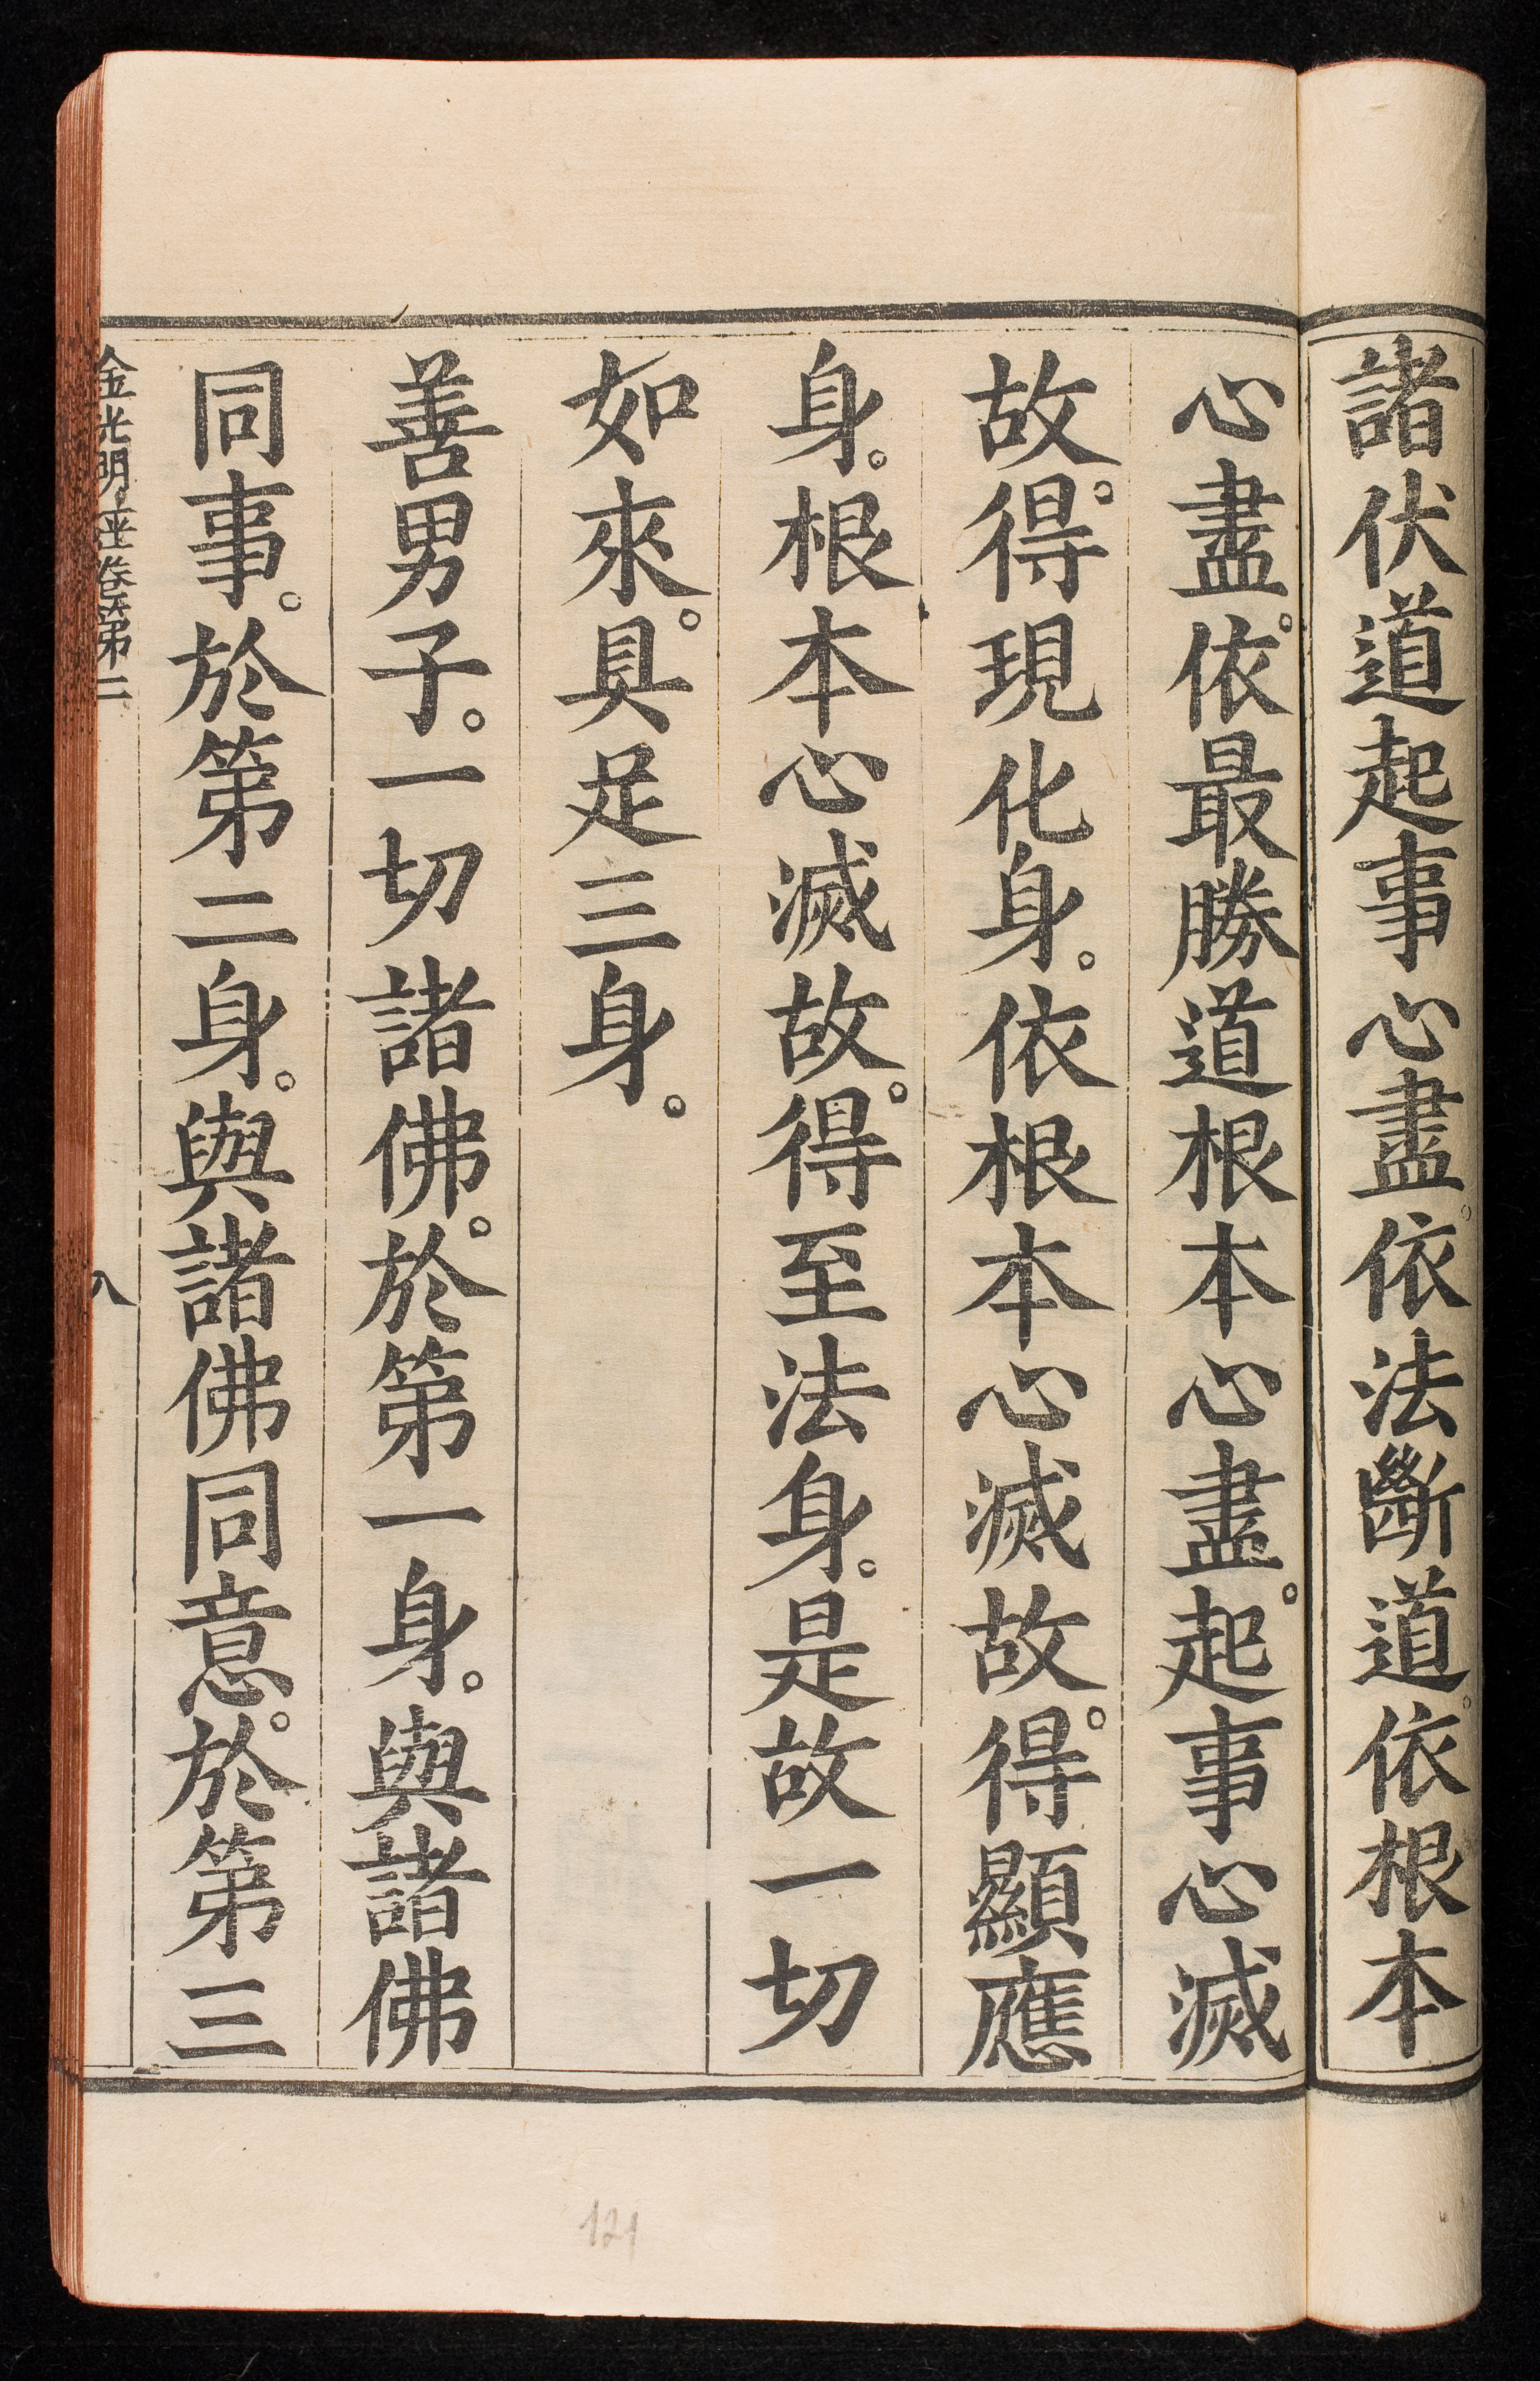 諸伏道起事心盡。依法斷道。依根本
心盡。依最勝道根本心盡。起事心滅
故。得現化身。依根本心滅故。得顯應
身。根本心滅故。得至法身。是故一切
如來。具足三身。
善男子。一切諸佛。於第一身。與諸佛
同事。於第二身。與諸佛同意。於第三
金光明經卷第二
八
121